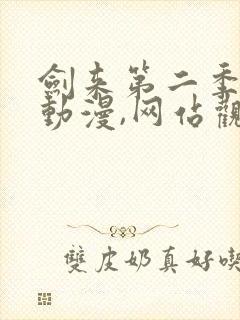 劍来第二季
動漫,网站觀
雙皮奶真好喫